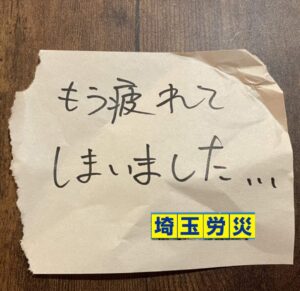 もう疲れて
しまいました...
埼玉労災